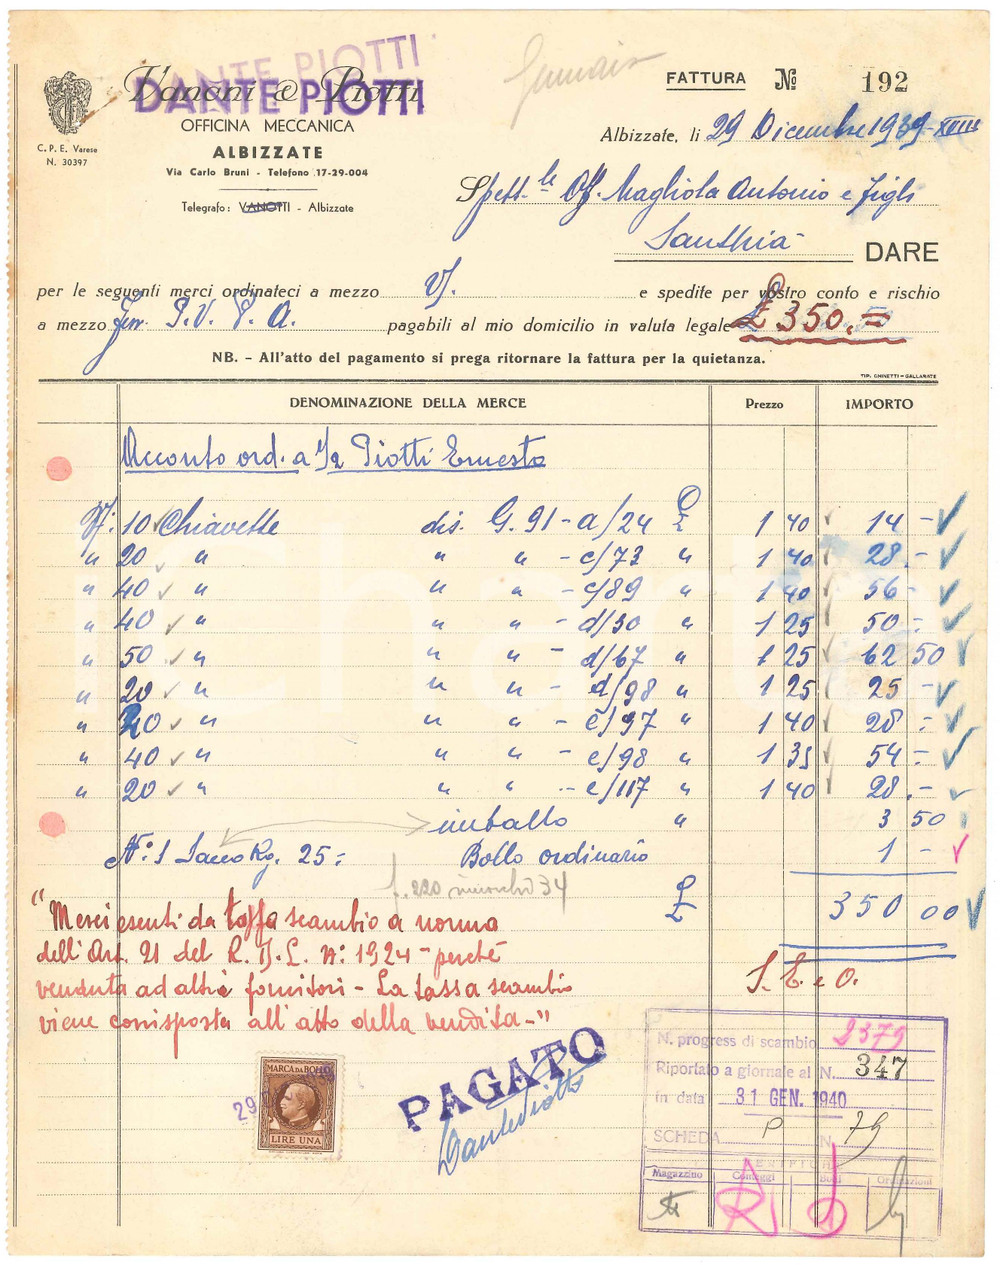 DANTE PIOTTI
Vanoni & Piotti
DANTE PIOTTI
OFFICINA MECCANICA
ALBIZZATE
Via Carlo Bruni - Telefono 17-29-004
Telegrafo: VANOTTI - Albizzate
C. P. E. Varese
N. 30397
Gennaio
FATTURA № 192
Albizzate, li 29 Dicembre 1939-XVIII
Spett.le Off. Magliola Antonio e Figli
Santhià DARE
per le seguenti merci ordinateci a mezzo Vs. e spedite per vostro conto e rischio
a mezzo Ferr. P. V. P. A. pagabili al mio domicilio in valuta legale £ 350.=
NB. - All'atto del pagamento si prega ritornare la fattura per la quietanza.
TIP. GHINETTI - GALLARATE
DENOMINAZIONE DELLA MERCE Prezzo IMPORTO
Acconto ord. a Piotti Ernesto
10 Chiavette dis. G. 91 - a/24 £ 1 40 14 -
" 20 " " " - c/73 " 1 40 28 -
" 40 " " " - c/89 " 1 40 56 -
" 40 " " " - d/30 " 1 25 50 -
" 50 " " " - d/67 " 1 25 62 50
" 20 " " " - d/98 " 1 25 25 -
" 20 " " " - e/97 " 1 40 28 -
" 40 " " " - e/98 " 1 35 54 -
" 20 " " " - e/117 " 1 40 28 -
imballo " 3 50
N° 1 Sacco Kg. 25 = Bollo ordinario 1 -
£ 350 00
"Merci esenti da tassa scambio a norma
dell'Art. 21 del R. D. L. N: 1924 - perchè
venduta ad altri fornitori - La tassa scambio
viene corrisposta all'atto della vendita -"
S. E. e O.
MARCA DA BOLLO
LIRE UNA
29
PAGATO
Dante Piotti
N. progress di scambio 2379
Riportato a giornale al N. 347
in data 31 GEN. 1940
SCHEDA P N. 79
VERIFICHE
Magazzino Conteggi Bolli Ordinazioni